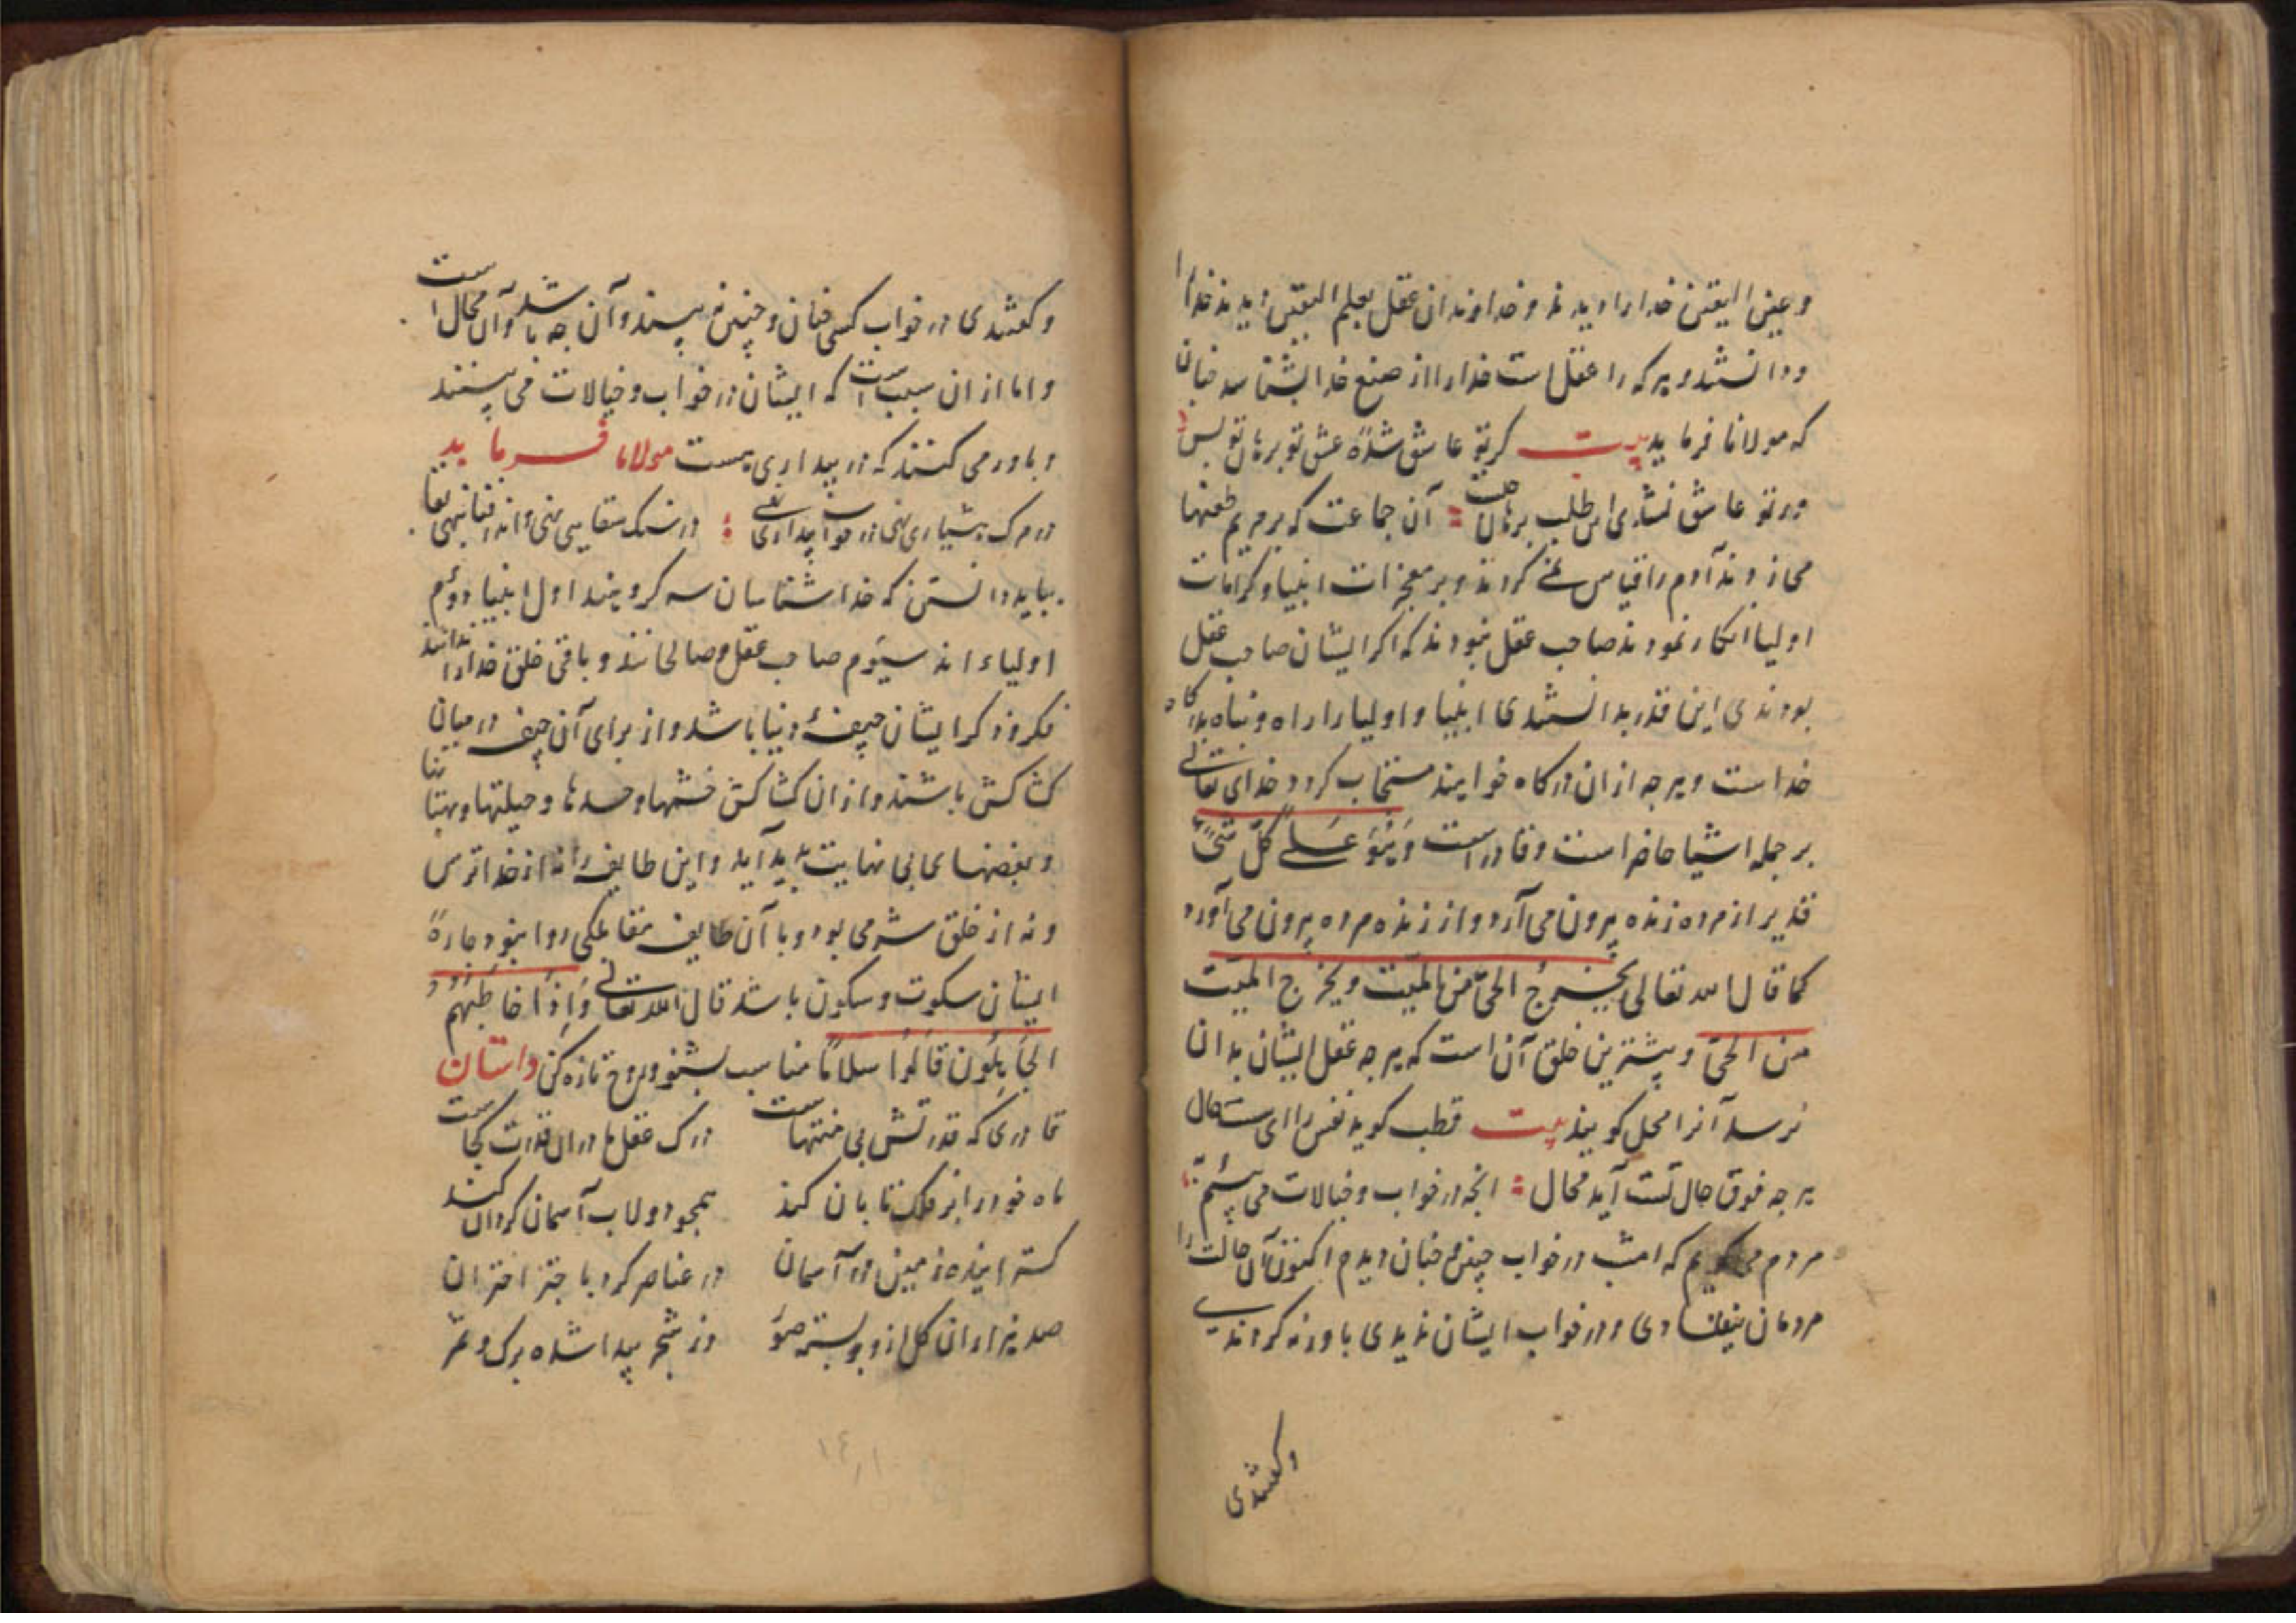 و عین الیقین خدا را دیدند و خداوندان عقل بعلم الیقین دیدند خدا را
و دانستند و هر که را عقل است خدا را از صنع خدا بشناسد چنان
که مولانا فرماید بیت کر تو عاشق شدهٔ عشق تو برهان تو بس
ور تو عاشق نشدی اس طلب برهان آن جماعت که بر مریم طعنها
می‌زدند آدم را قیاس کردند و بر معجزات انبیا و کرامات
اولیا انکار نمودند صاحب عقل نبودند که اکر ایشان صاحب عقل
بودندی این قدر بدانستندی انبیا و اولیا را راه و پناه بدرکاه
خداست و هر چه از ان درکاه خواهند مستجاب کردد خدای تعالی
بر جمله اشیا حاضر است و قادر است وَهُوَ عَلٰی کُلِّ شَیْءٍ
قدیر از مرده زنده بیرون می آرد و از زنده مرده بیرون می آورد
کما قال الله تعالی یخرج الحیّ من المیّت و یخرج المیّت
من الحیّ و بیشترین خلق آن است که هر چه عقل ایشان بدان
نرسد آنرا محل کویند بیت قطب کوید نفس را ای
هر چه فوق حال تست آید محال انچه در خواب و خیالات می بینیم
مردم می کویم که امشب در خواب چنین و چنان دیدم اکنون آن حالت را
مردمان و در خواب ایشان ندیدی باور نه کردندی
و کفتندی
و کفتندی در خواب کسی چنان و چنین نه بیند و آن چه باشد و آن محال است
و اما از ان سبب است که ایشان در خواب و خیالات می بینند
و باور می کنند که در بیداری هست مولانا فرماید
در مرک هشیاری نهی در خواب بیداری نهی در سنک سقایی نهی و اندر
بباید دانستن که خداشناسان سه کروهند اول انبیا دوم
اولیاء اند سیوم صاحب عقل و صالحانند و باقی خلق خدا را ندانند
فکر و ذکر ایشان جیفهٔ دنیا باشد و از برای آن جیفه در میان
کشاکش باشند و از ان کشاکش خشمها و حسدها و حیلتها و بهتانها
و بغضهای بی نهایت پدید آید و این طایفه را نه از خدا ترس
و نه از خلق شرمی بود و با آن طایفه مقابلکی روا نبود چارهٔ
ایشان سکوت و سکون باشد قال الله تعالی وَاِذَا خَاطَبَهُمُ
الجَاهِلُونَ قَالُوا سلامًا مناسب بشنو و روح تازه کن داستان
قادری که قدرتش بی منتهاست درک عقل ما در ان قدرت کجاست
ماه خور را بر فلک تابان کند همچو دولاب آسمان کردان کند
کسترانیده زمین و آسمان در عناصر کرد با جنز اختران
صد هزاران کل از و صور وز شجر پیدا شده برک و ثمر